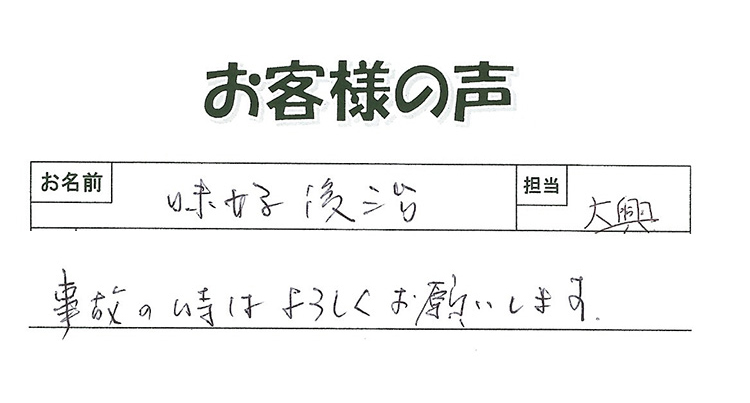 お客様の声
お名前 味好俊治 担当 大興
事故の時はよろしくお願いします.